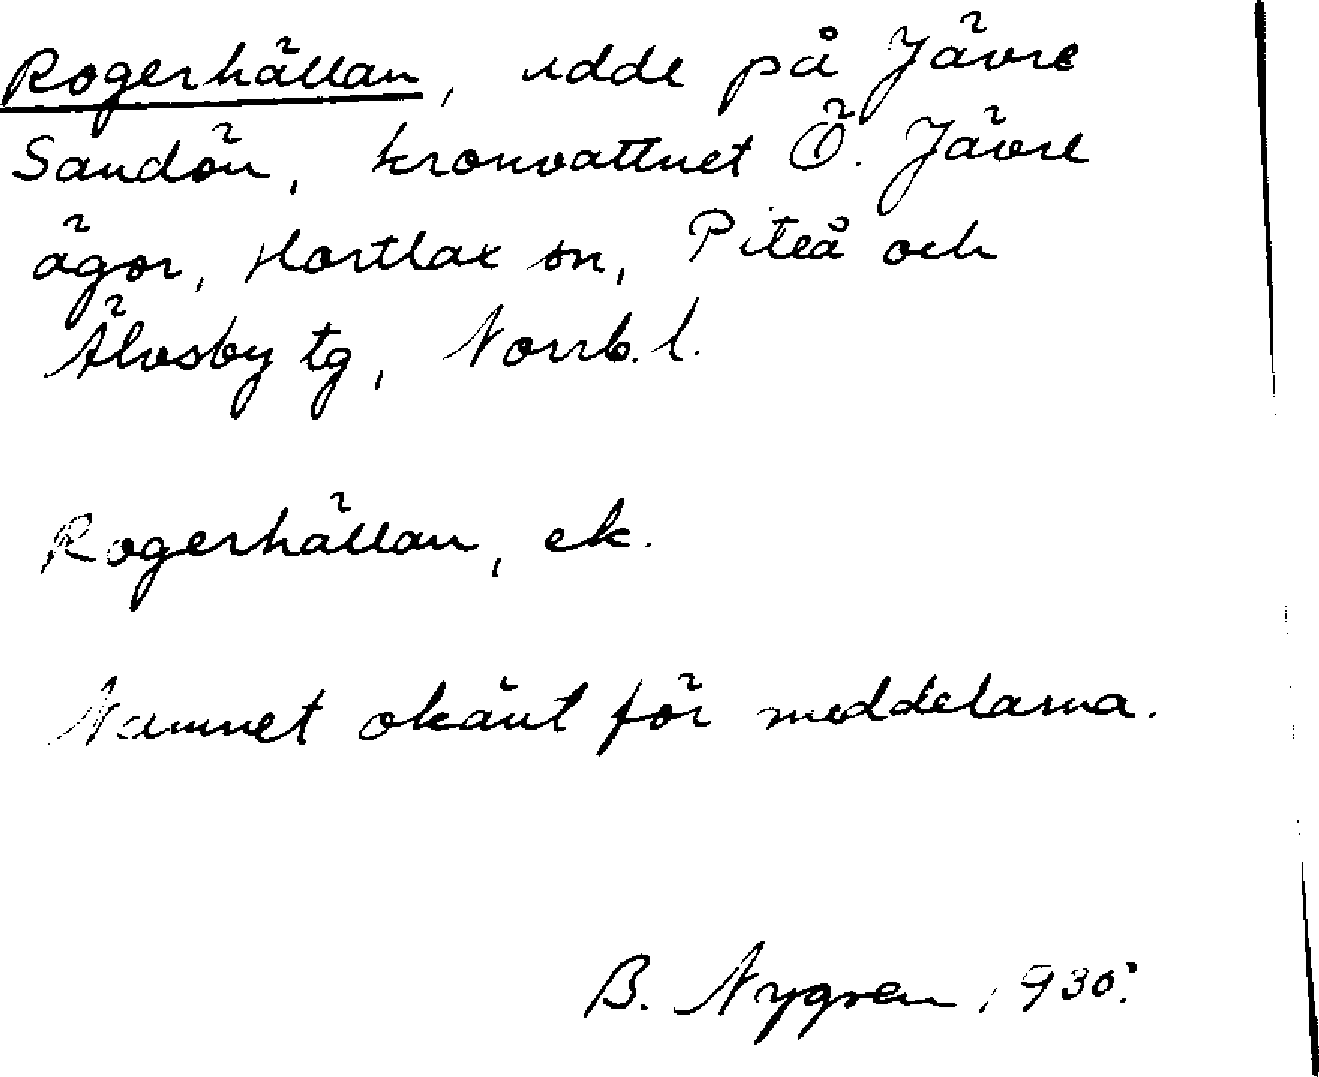 Rogerhällan, udde på Jävre
Sandön, kronvattnet Ö. Jävre
ägor, Hortlax sn, Piteå och
Älvsby tg, Norrb. l.
Rogerhällan, ek.
Namnet okänt för meddelarna.
B. Nygren 1930.